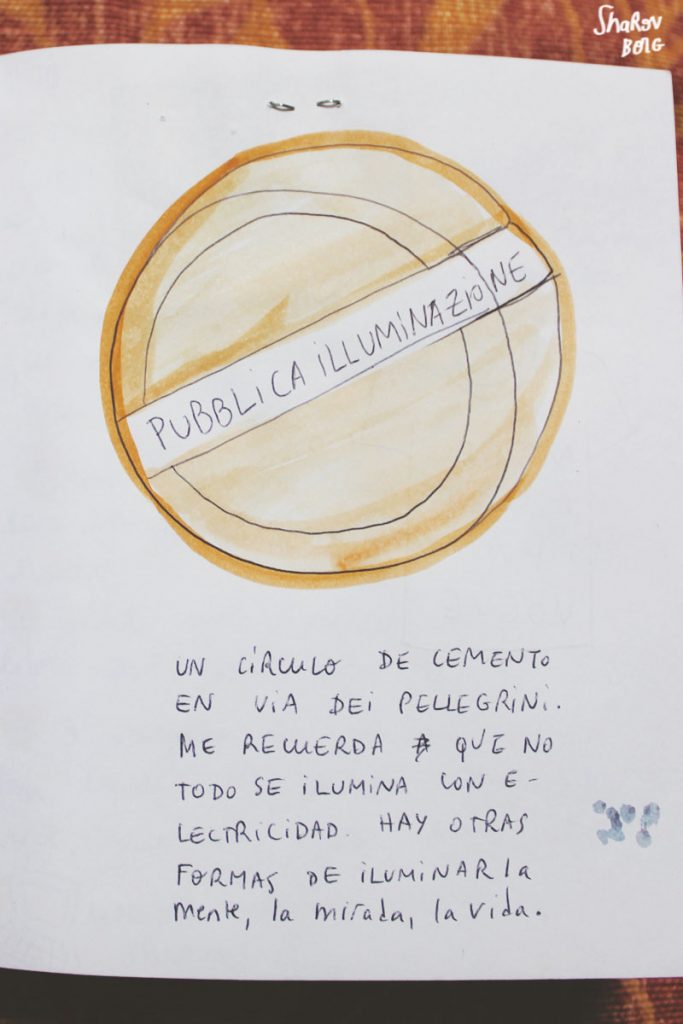 Sharon
Borg
PUBBLICA iLLUMiNAZiONE
UN CÍRCULO DE CEMENTO
EN ViA DEi PELLEGRiNi.
ME RECUERDA QUE NO
TODO SE iLUMiNA CON E-
LECTRiCiDAD. HAY OTRAS
FORMAS DE iLUMiNAR la
mente, la mirada, la vida.